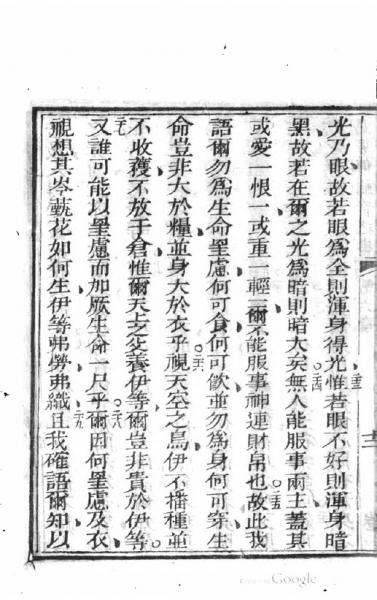 光乃眼故若眼爲全則渾身得光惟若眼不好則渾身暗
黑故若在爾之光爲暗則暗大矣無人能服事兩主蓋其
二四
或愛一恨一或重一輕一爾不能服事神連財帛也故此我
二五
語爾勿爲生命罣慮何可食何可飲並勿爲身何可穿生
命豈非大於糧並身大於衣乎視天空之鳥伊不播種並
二六
不收穫不放于倉惟爾天父養伊等爾豈非貴於伊等
二七
又誰可能以罣慮而加厥生命一尺乎爾因何罣慮及衣
二八
視想其岑蓺花如何生伊等弗勞弗織且我確語爾知以
二九
Google